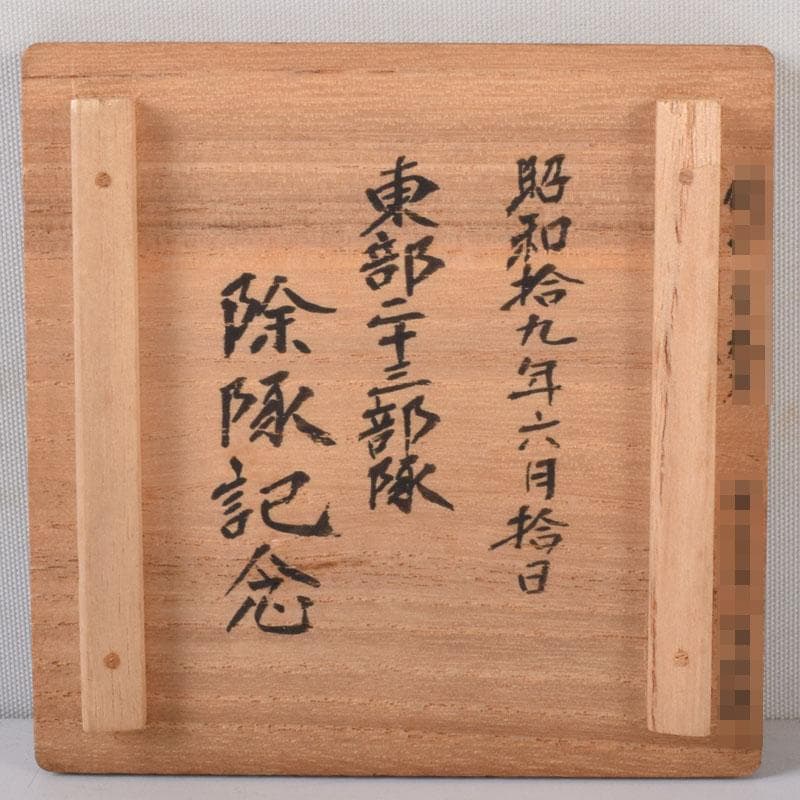 昭和拾九年六月拾日
東部二十三部隊
除隊記念